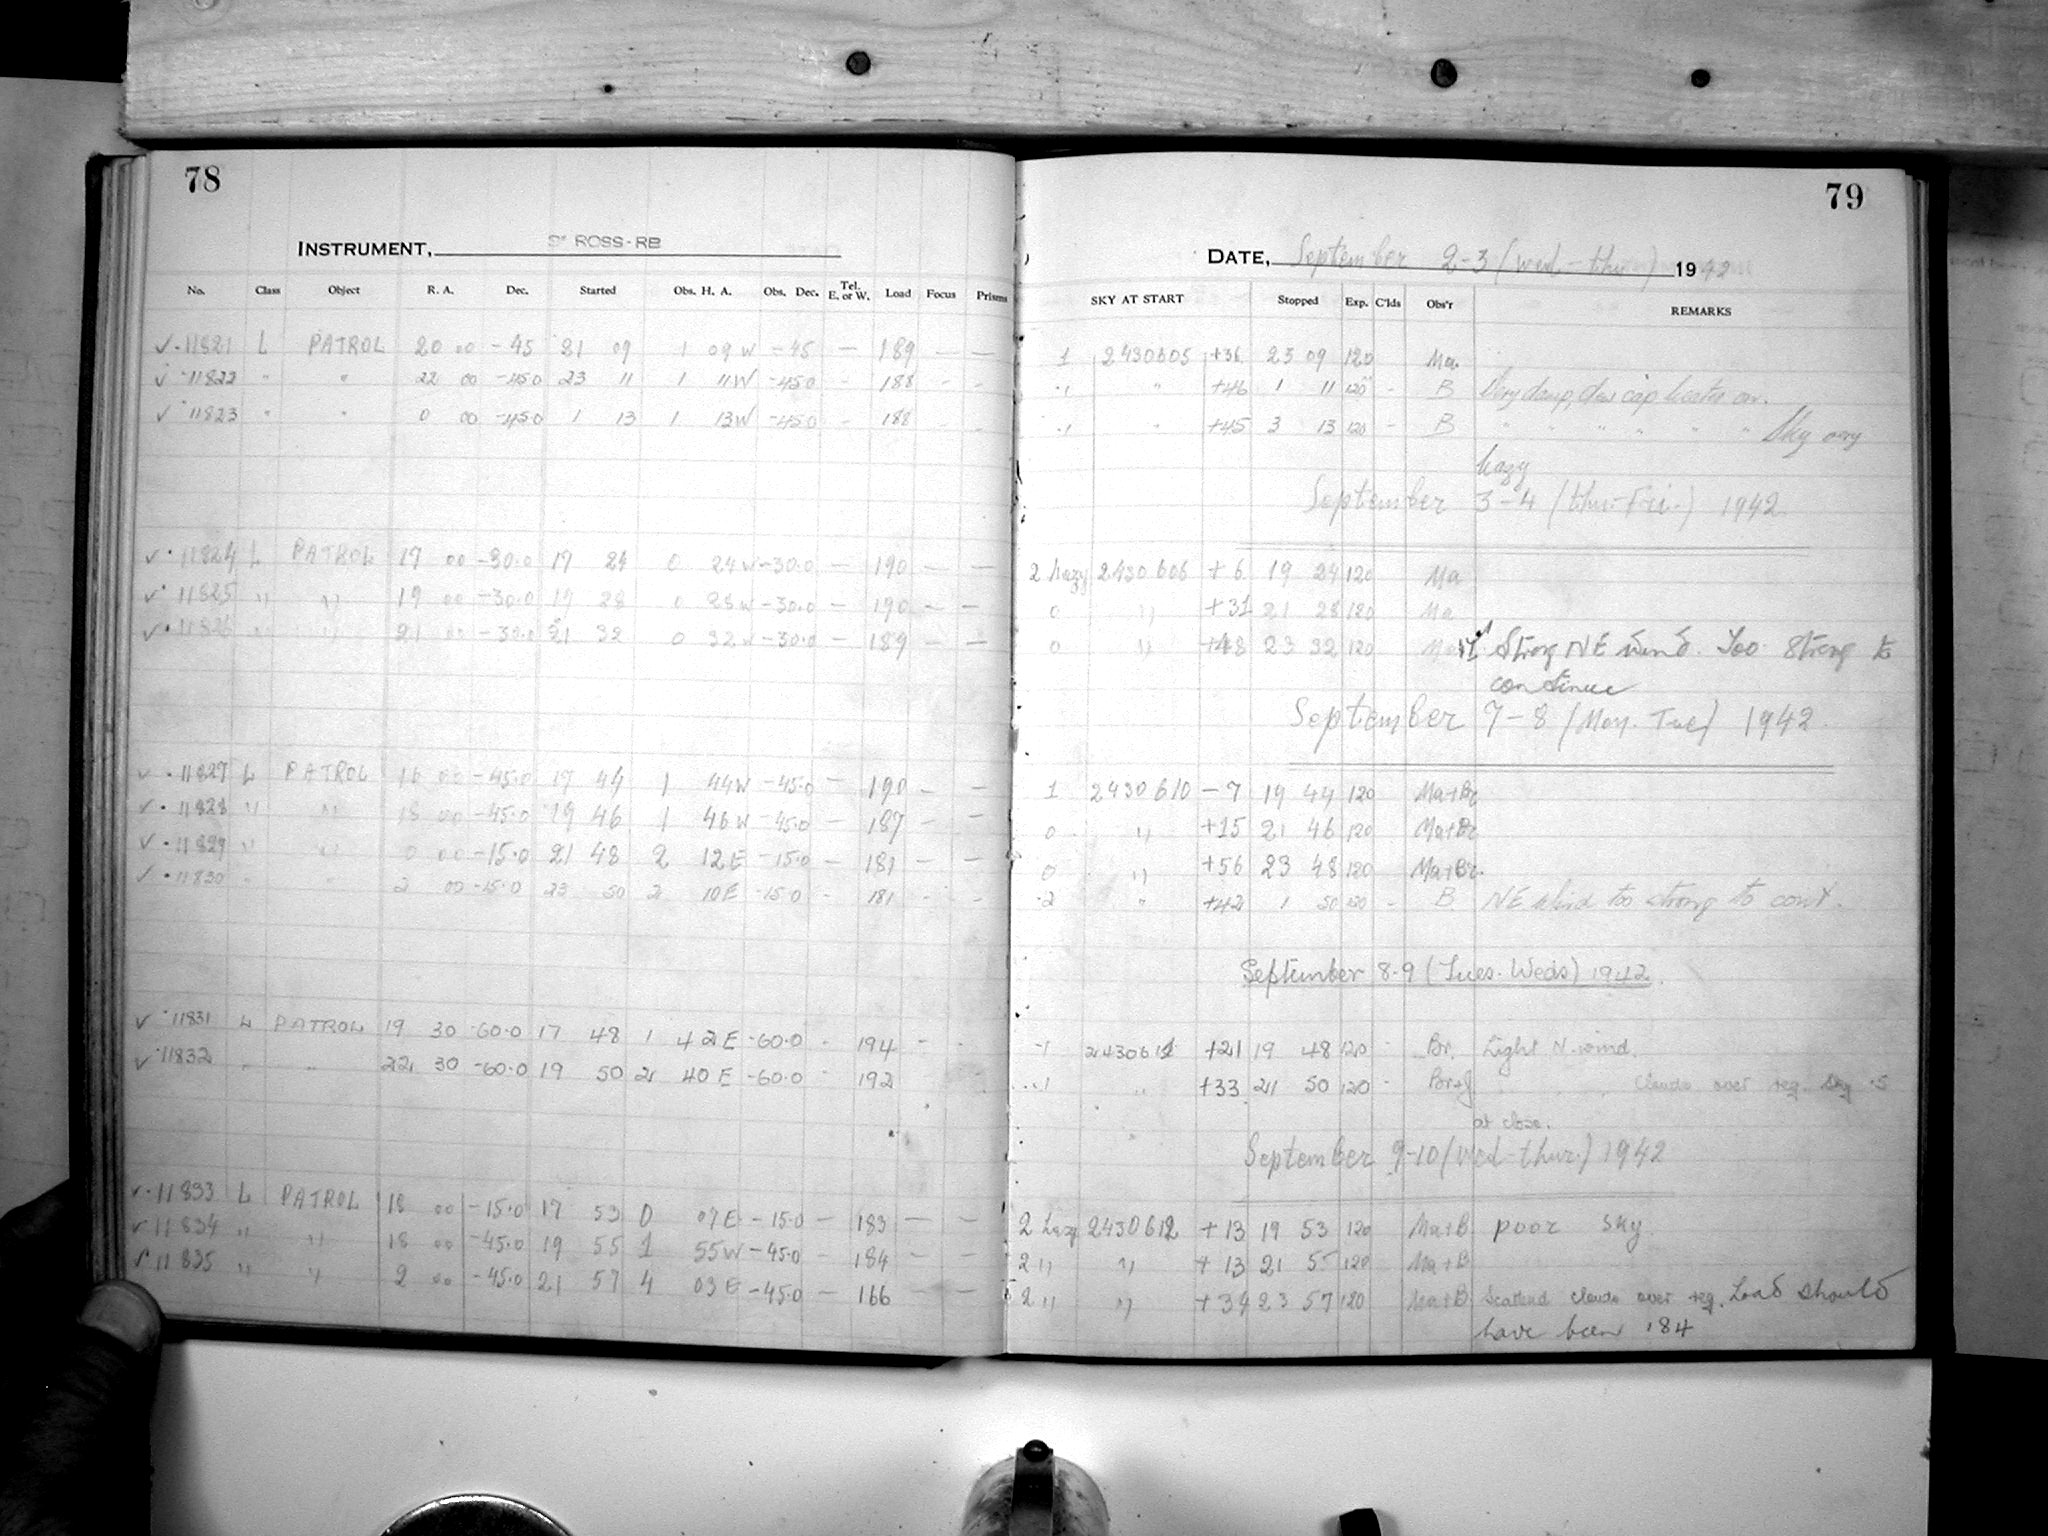 78
INSTRUMENT, ROSS-RB
No. Class Object R. A. Dec. Started Obs. H. A. Obs. Dec. Tel. E. or W. Load Focus Prisms
✓ · 11821 L PATROL 20 00 - 45 21 09 1 09 W - 45 — 189 — —
✓ · 11822 " " 22 00 -45.0 23 11 1 11W -45.0 - 188 - -
✓ · 11823 " " 0 00 -45.0 1 13 1 13W -45.0 - 188 - -
✓ · 11824 L PATROL 17 00 -30.0 17 24 0 24 W -30.0 — 190 — —
✓ · 11825 " " 19 00 -30.0 19 28 0 28 W -30.0 — 190 — —
✓ · 11826 " " 21 00 -30.0 21 32 0 32 W -30.0 — 189 — —
✓ · 11827 L PATROL 16 00 -45.0 17 44 1 44W -45.0 — 190 — —
✓ · 11828 " " 18 00 -45.0 19 46 1 46 W -45.0 — 187 — —
✓ · 11829 " " 0 00 -15.0 21 48 2 12 E -15.0 — 181 — —
✓ · 11830 " " 2 00 -15.0 23 50 2 10 E -15.0 - 181 - -
✓ · 11831 L PATROL 19 30 -60.0 17 48 1 42 E -60.0 - 194 - -
✓ · 11832 " " 22 30 -60.0 19 50 2 40 E -60.0 - 192 -
✓ · 11833 L PATROL 18 00 -15.0 17 53 0 07 E - 15.0 — 183 — —
✓ · 11834 " " 18 00 -45.0 19 55 1 55 W -45.0 - 184 — —
✓ · 11835 " " 2 00 -45.0 21 57 4 03 E -45.0 — 166 — —
79
DATE, September 2-3 (wed - thu) 1942
SKY AT START Stopped Exp. C'lds Obs'r REMARKS
1 2430605 +36 23 09 120 Ma.
-1 " +46 1 11 120 - B Very damp, dew cap heater on.
-1 " +45 3 13 120 - B " " " " " " Sky very
hazy
September 3-4 (thu-Fri.) 1942
2 hazy 2430606 + 6 19 24 120 Ma
0 " +31 21 28 120 Ma
0 " +48 23 32 120 Strong NE wind. Too strong to
continue
September 7-8 (Mon. Tue) 1942
1 2430610 - 7 19 44 120 Ma+Br
0 " +15 21 46 120 Ma+Br
0 " +56 23 48 120 Ma+Br.
-2 " +42 1 50 120 - B NE Wind too strong to cont.
September 8-9 (Tues. Weds) 1942.
-1 2430611 +21 19 48 120 - Br. Light N. wind.
-1 " +33 21 50 120 - " " " Clouds over reg. Sky .5
at close.
September 9-10 (wed-thur.) 1942
2 hazy 2430612 + 13 19 53 120 Ma+B poor sky.
2 " " + 13 21 55 120 Ma+B
2 " " + 34 23 57 120 Ma+B Scattered clouds over reg. Load should
have been 184